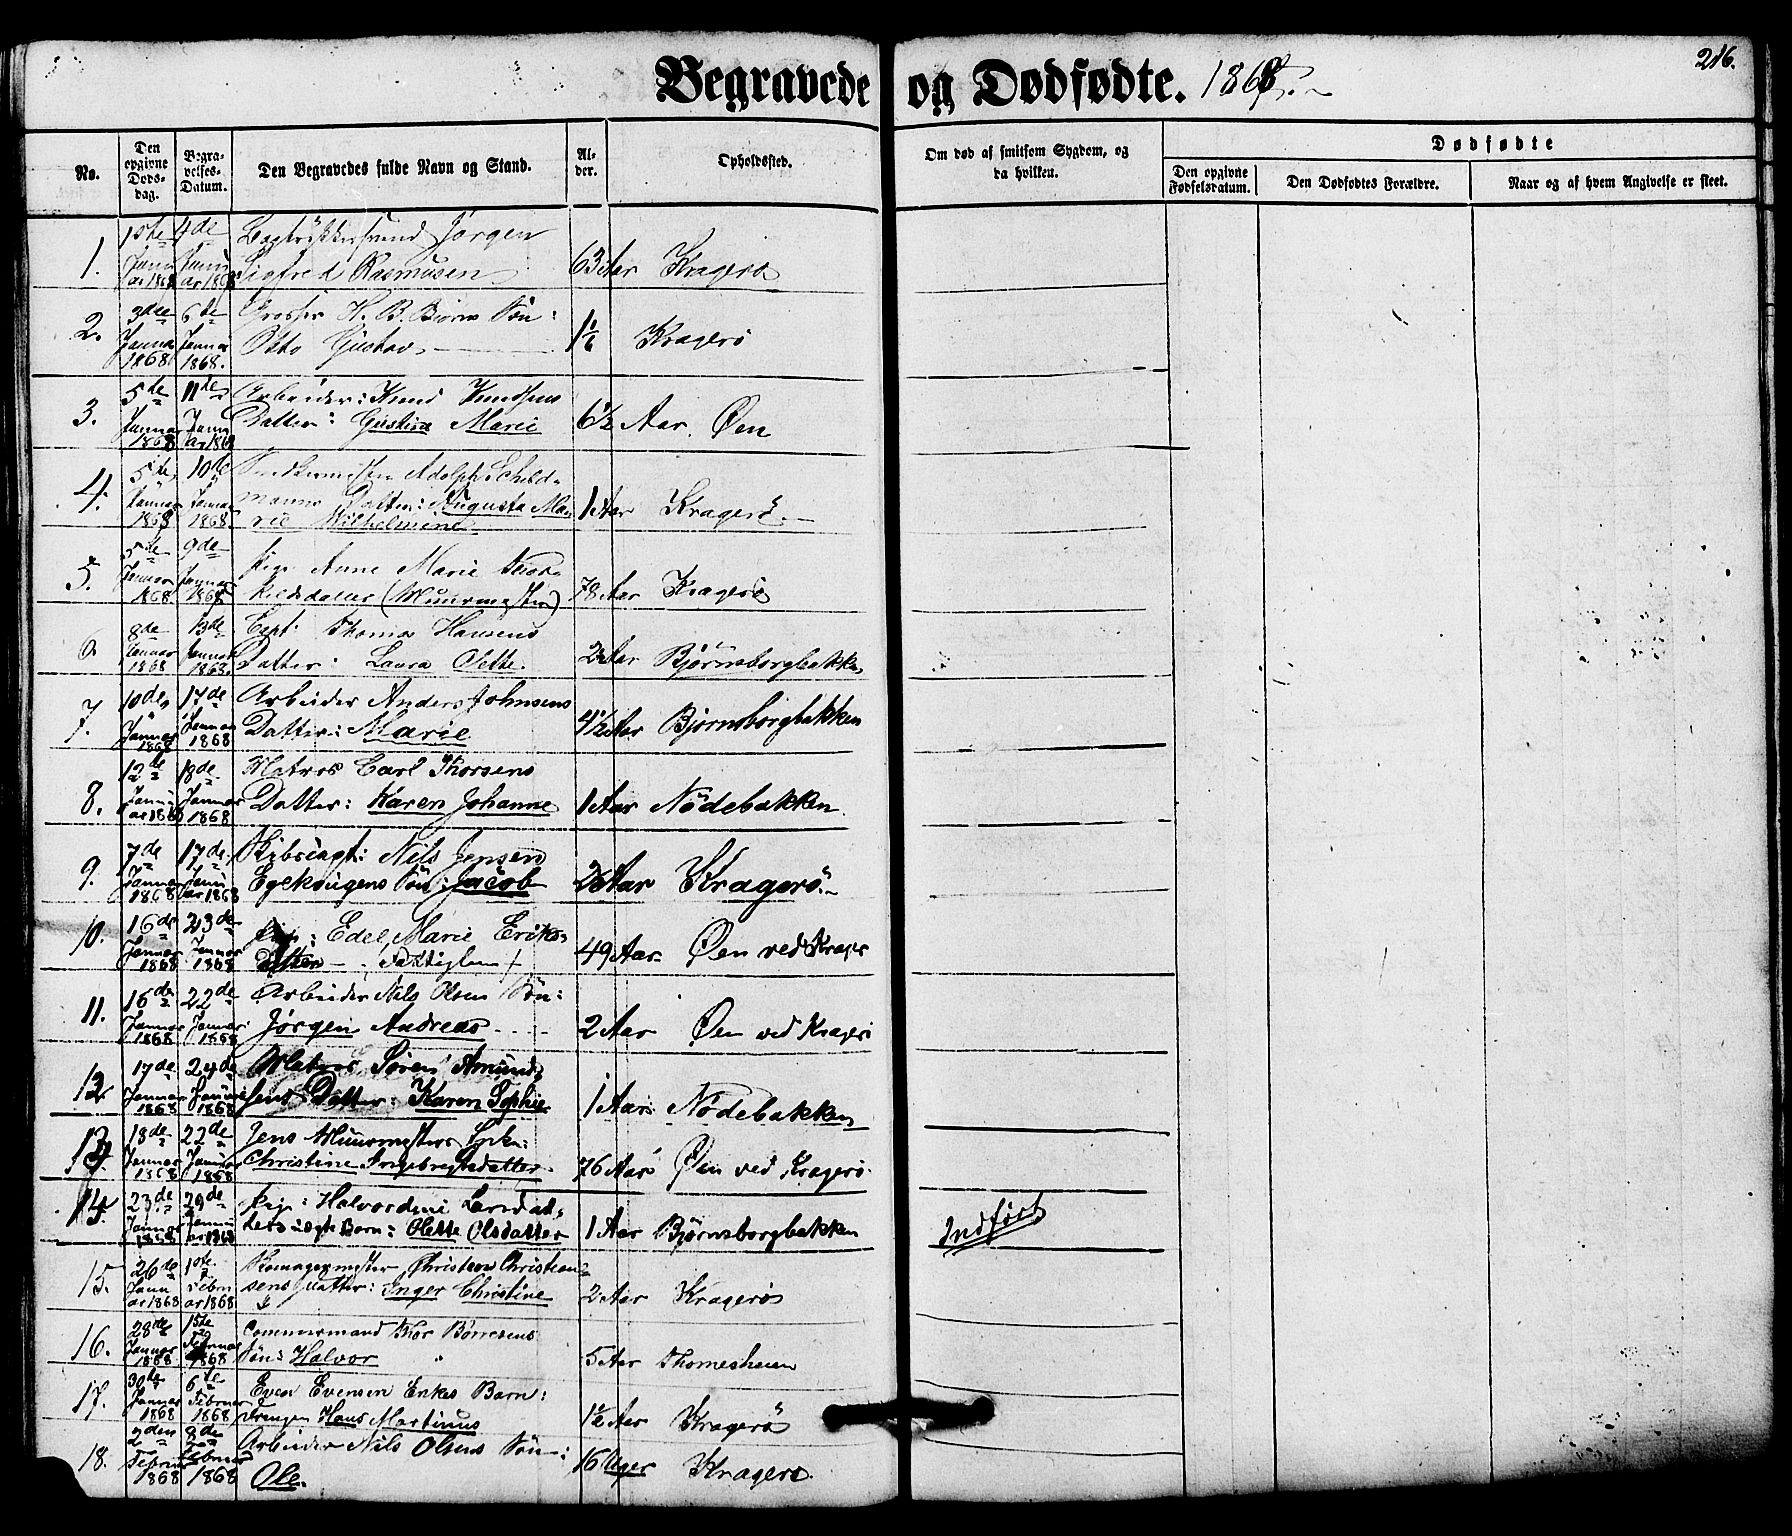 Begravede og Dødfødte. 1868.
216.
No.
Den opgivne Døds-dag.
Begra-velses-Datum.
Den Begravedes fulde Navn og Stand.
Al-der.
Opholdssted.
Om død af smitsom Sygdom, og da hvilken.
Dødfødte
Den opgivne Fødselsdatum.
Den Dødfødtes Forældre.
Naar og af hvem Angivelse er skeet.
1. 1ste Januar 1868 4de Januar 1868 Jørgen
Sigfred Rasmusen 63 Aar Kragerø
2. 3die Januar 1868 6te Januar 1868. Grosser H. B. Biørns Søn:
Otto Gustav 1 1/6 Kragerø
3. 5te Januar 1868 11te Januar 1868 Arbeider: Knud Knudsens
Datter: Gustina Marie 6 1/2 Aar. Øen
4. 5te Januar 1868 10de Januar 1868 Adolph Schild-
manns Datter: Augusta Ma-
rie Wilhelmine 1 Aar Kragerø
5. 5te Januar 1868. 9de Januar 1868 Pige Anne Marie Thor-
kildsdatter (Muurmester) 78 Aar Kragerø
6. 8de Januar 1868 13de Januar 1868. Capt: Thomas Hansens
Datter: Laura Olette. Aar Bjørnsborgbakken
7. 10de Januar 1868 17de Januar 1868 Arbeider Anders Johnsens
Datter: Marie 4 1/2 Aar Bjørnsborgbakken
8. 12te Januar 1868 18de Januar 1868 Matros Carl Thorsens
Datter: Karen Johanne 1 Aar Nødebakken
9. 7de Januar 1868 17de Januar 1868 Nils Jensen
Egekougens Søn: Jacob Aar Kragerø
10. 16de Januar 1868 23de Januar 1868 Edel Marie Eriks-
Datter Fattiglem 49 Aar Øen ved Kragerø
11. 16de Januar 1868 22de Januar 1868 Arbeider Nils Olsens Søn:
Jørgen Andreas 2 Aar Øen ved Kragerø
12 17de Januar 1868 24de Januar 1868 Matros Søren Amund-
sens Datter: Karen Sophie 1 Aar Nødebakken
13. 18de Januar 1868 22de Januar 1868 Jens Muurmesters Enke:
Christine Ingebregtsdatter 76 Aar Øen ved Kragerø
14. 23de Januar 1868 29de Januar 1868 Pige: Halvordine Larsdat-
ters uægte Barn: Olette Olsdatter 1 Aar Bjørnsborgbakken Indført
15. 26de Januar 1868 1ste Februar 1868 Christen Christian-
sens Datter: Inger Christine 2 Aar Kragerø
16. 28de Januar 1868 15de Februar 1868 Tømmermand Thor Børresens
Søn: Halvor 5 Aar Thomesheien
17. 30te Januar 1868 6te Februar 1868 Even Evensen Enkes Barn:
Drengen Hans Martinus 1 1/2 Aar Kragerø
18. 2den Februar 1868 8de Februar 1868 Arbeider Nils Olsens Søn:
Ole. 16 Uger Kragerø.